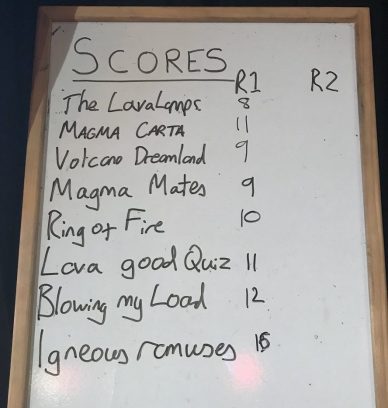 SCORES
R1 R2
The LavaLamps 8
MAGMA CARTA 11
Volcano Dreamland 9
Magma Mates 9
Ring of Fire 10
Lava good Quiz 11
Blowing my Load 12
Igneous ramuses